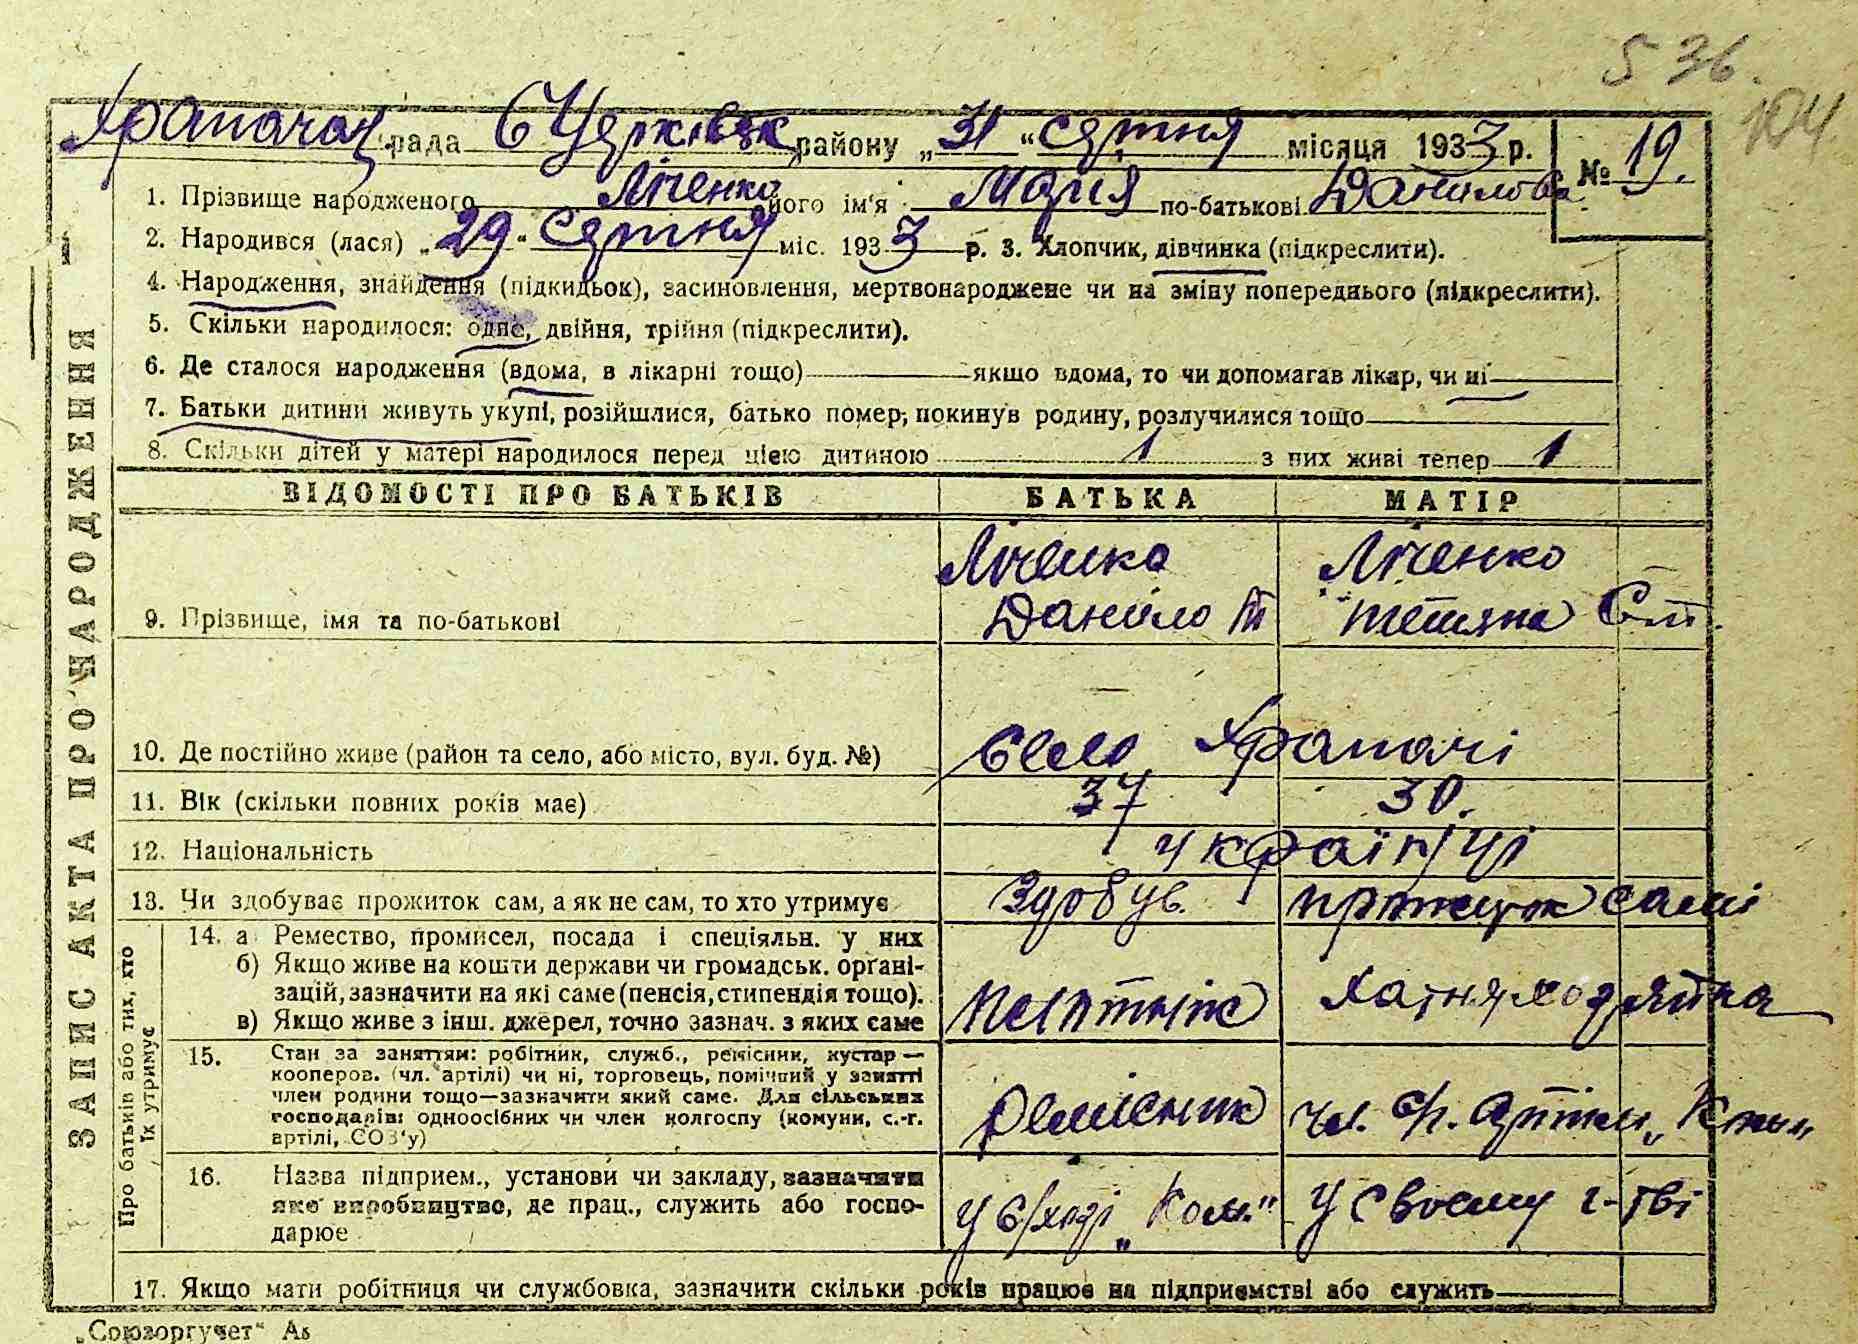 536.
104
Храпачан. рада БЦерківськ району „31“ серпня місяця 1933 р. № 19.
1. Прізвище народженого Ліченко його ім'я Марія по-батькові Данилова
2. Народився (лася) „29“ серпня міс. 1933 р. 3. Хлопчик, дівчинка (підкреслити).
4. Народження, знайдення (підкидьок), засиновлення, мертвонароджене чи на зміну попереднього (підкреслити).
5. Скільки народилося: одне, двійня, трійня (підкреслити).
6. Де сталося народження (вдома, в лікарні тощо) якщо вдома, то чи допомагав лікар, чи ні
7. Батьки дитини живуть укупі, розійшлися, батько помер, покинув родину, розлучилися тощо
8. Скільки дітей у матері народилося перед цією дитиною 1 з них живі тепер 1
ВІДОМОСТІ ПРО БАТЬКІВ БАТЬКА МАТІР
9. Прізвище, імя та по-батькові Ліченко Данило Т Ліченко Тетяна Ст.
10. Де постійно живе (район та село, або місто, вул. буд. №) село Храпачі
11. Вік (скільки повних років має) 37 30.
12. Національність українці
13. Чи здобуває прожиток сам, а як не сам, то хто утримує Здобув. прожиток самі
14. а Ремество, промисел, посада і спеціяльн. у них
б) Якщо живе на кошти держави чи громадськ. орґані-
зацій, зазначити на які саме (пенсія, стипендія тощо).
в) Якщо живе з інш. джерел, точно зазнач. з яких саме
хатня ходяйка
15. Стан за заняттям: робітник, служб., ремісник, кустар —
кооперов. (чл. артілі) чи ні, торговець, помічний у занятті
член родини тощо—зазначити який саме. Для сільських
господарів: одноосібних чи член колгоспу (комуни, с.-г.
артілі, СОЗ'у)
Ремісник чл. с/г. артіли
16. Назва підприєм., установи чи закладу, зазначити
яке виробництво, де прац., служить або госпо-
дарює
у своєму г-тві
17. Якщо мати робітниця чи службовка, зазначити скільки років працює на підприємстві або служить
ЗАПИС АКТА ПРО НАРОДЖЕННЯ
Про батьків або тих, хто їх утримує
„Союзоргучет“